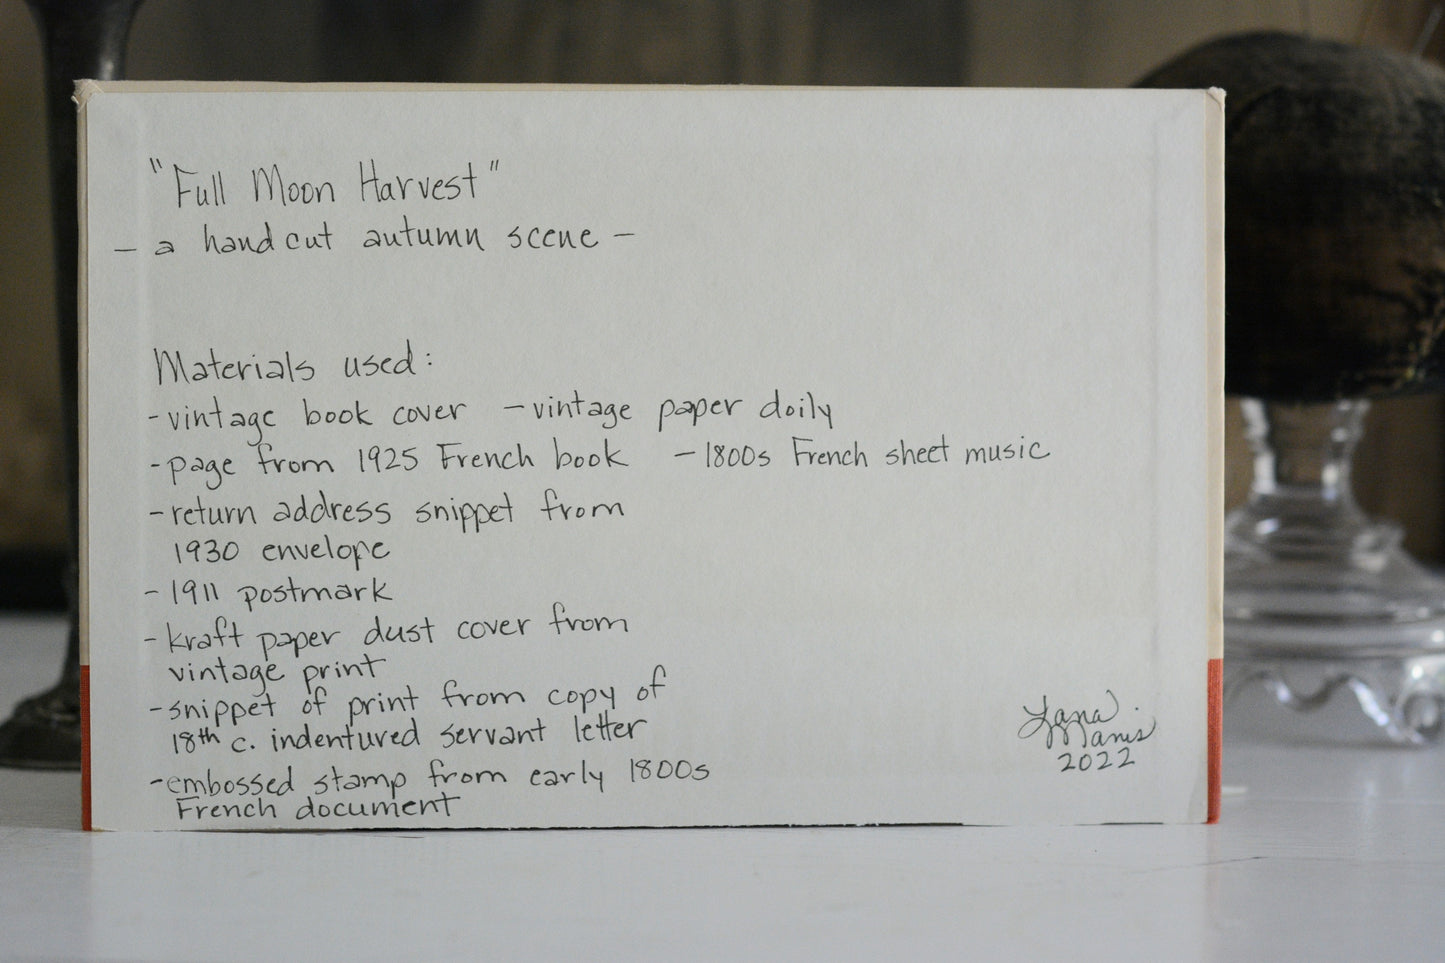 "Full Moon Harvest"
- a hand cut autumn scene -
Materials used:
- vintage book cover - vintage paper doily
- page from 1925 French book - 1800s French sheet music
- return address snippet from
1930 envelope
- 1911 postmark
- kraft paper dust cover from
vintage print
- snippet of print from copy of
18th c. indentured servant letter
- embossed stamp from early 1800s
French document
Lana
Manis
2022